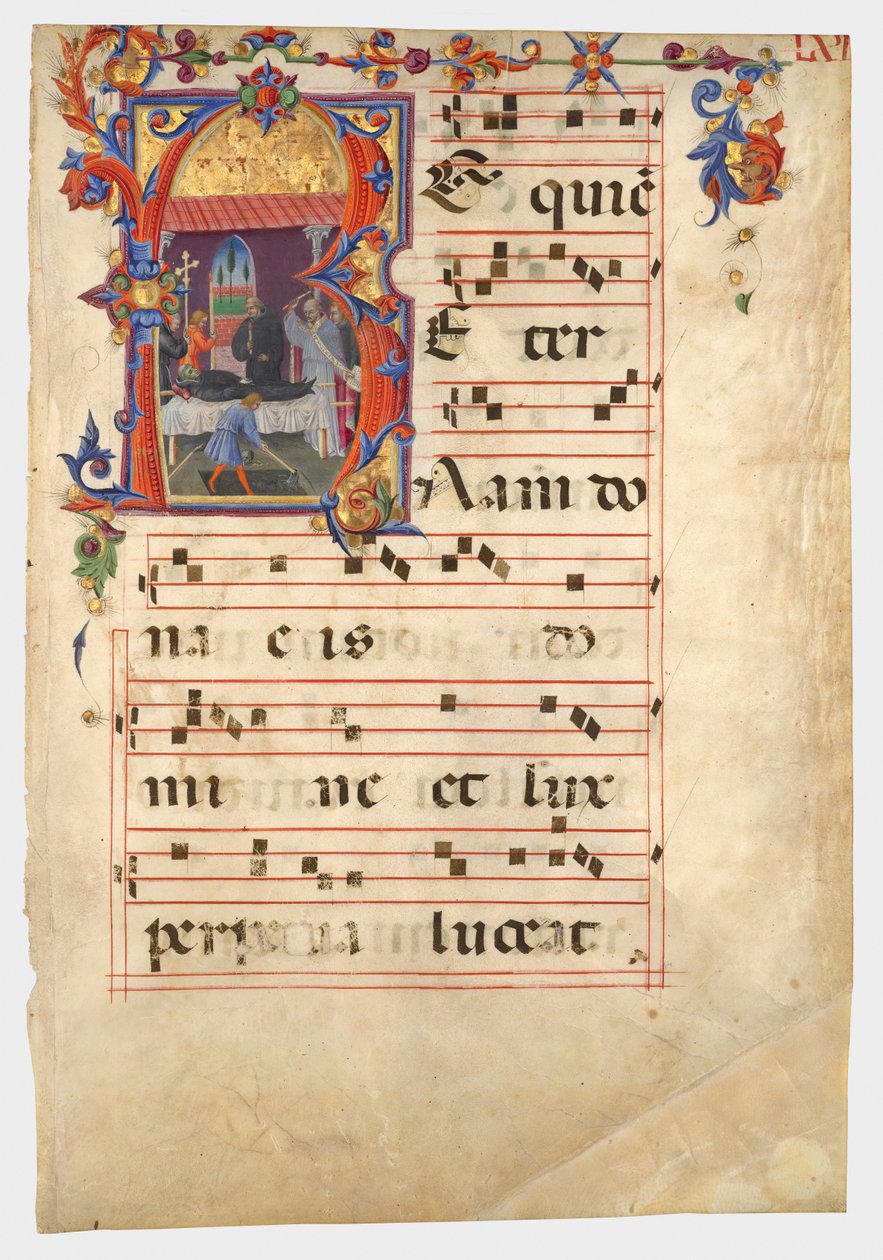 REquiē
Eter
Nam do
na eis do
mi ne et lux
perpetua luceat